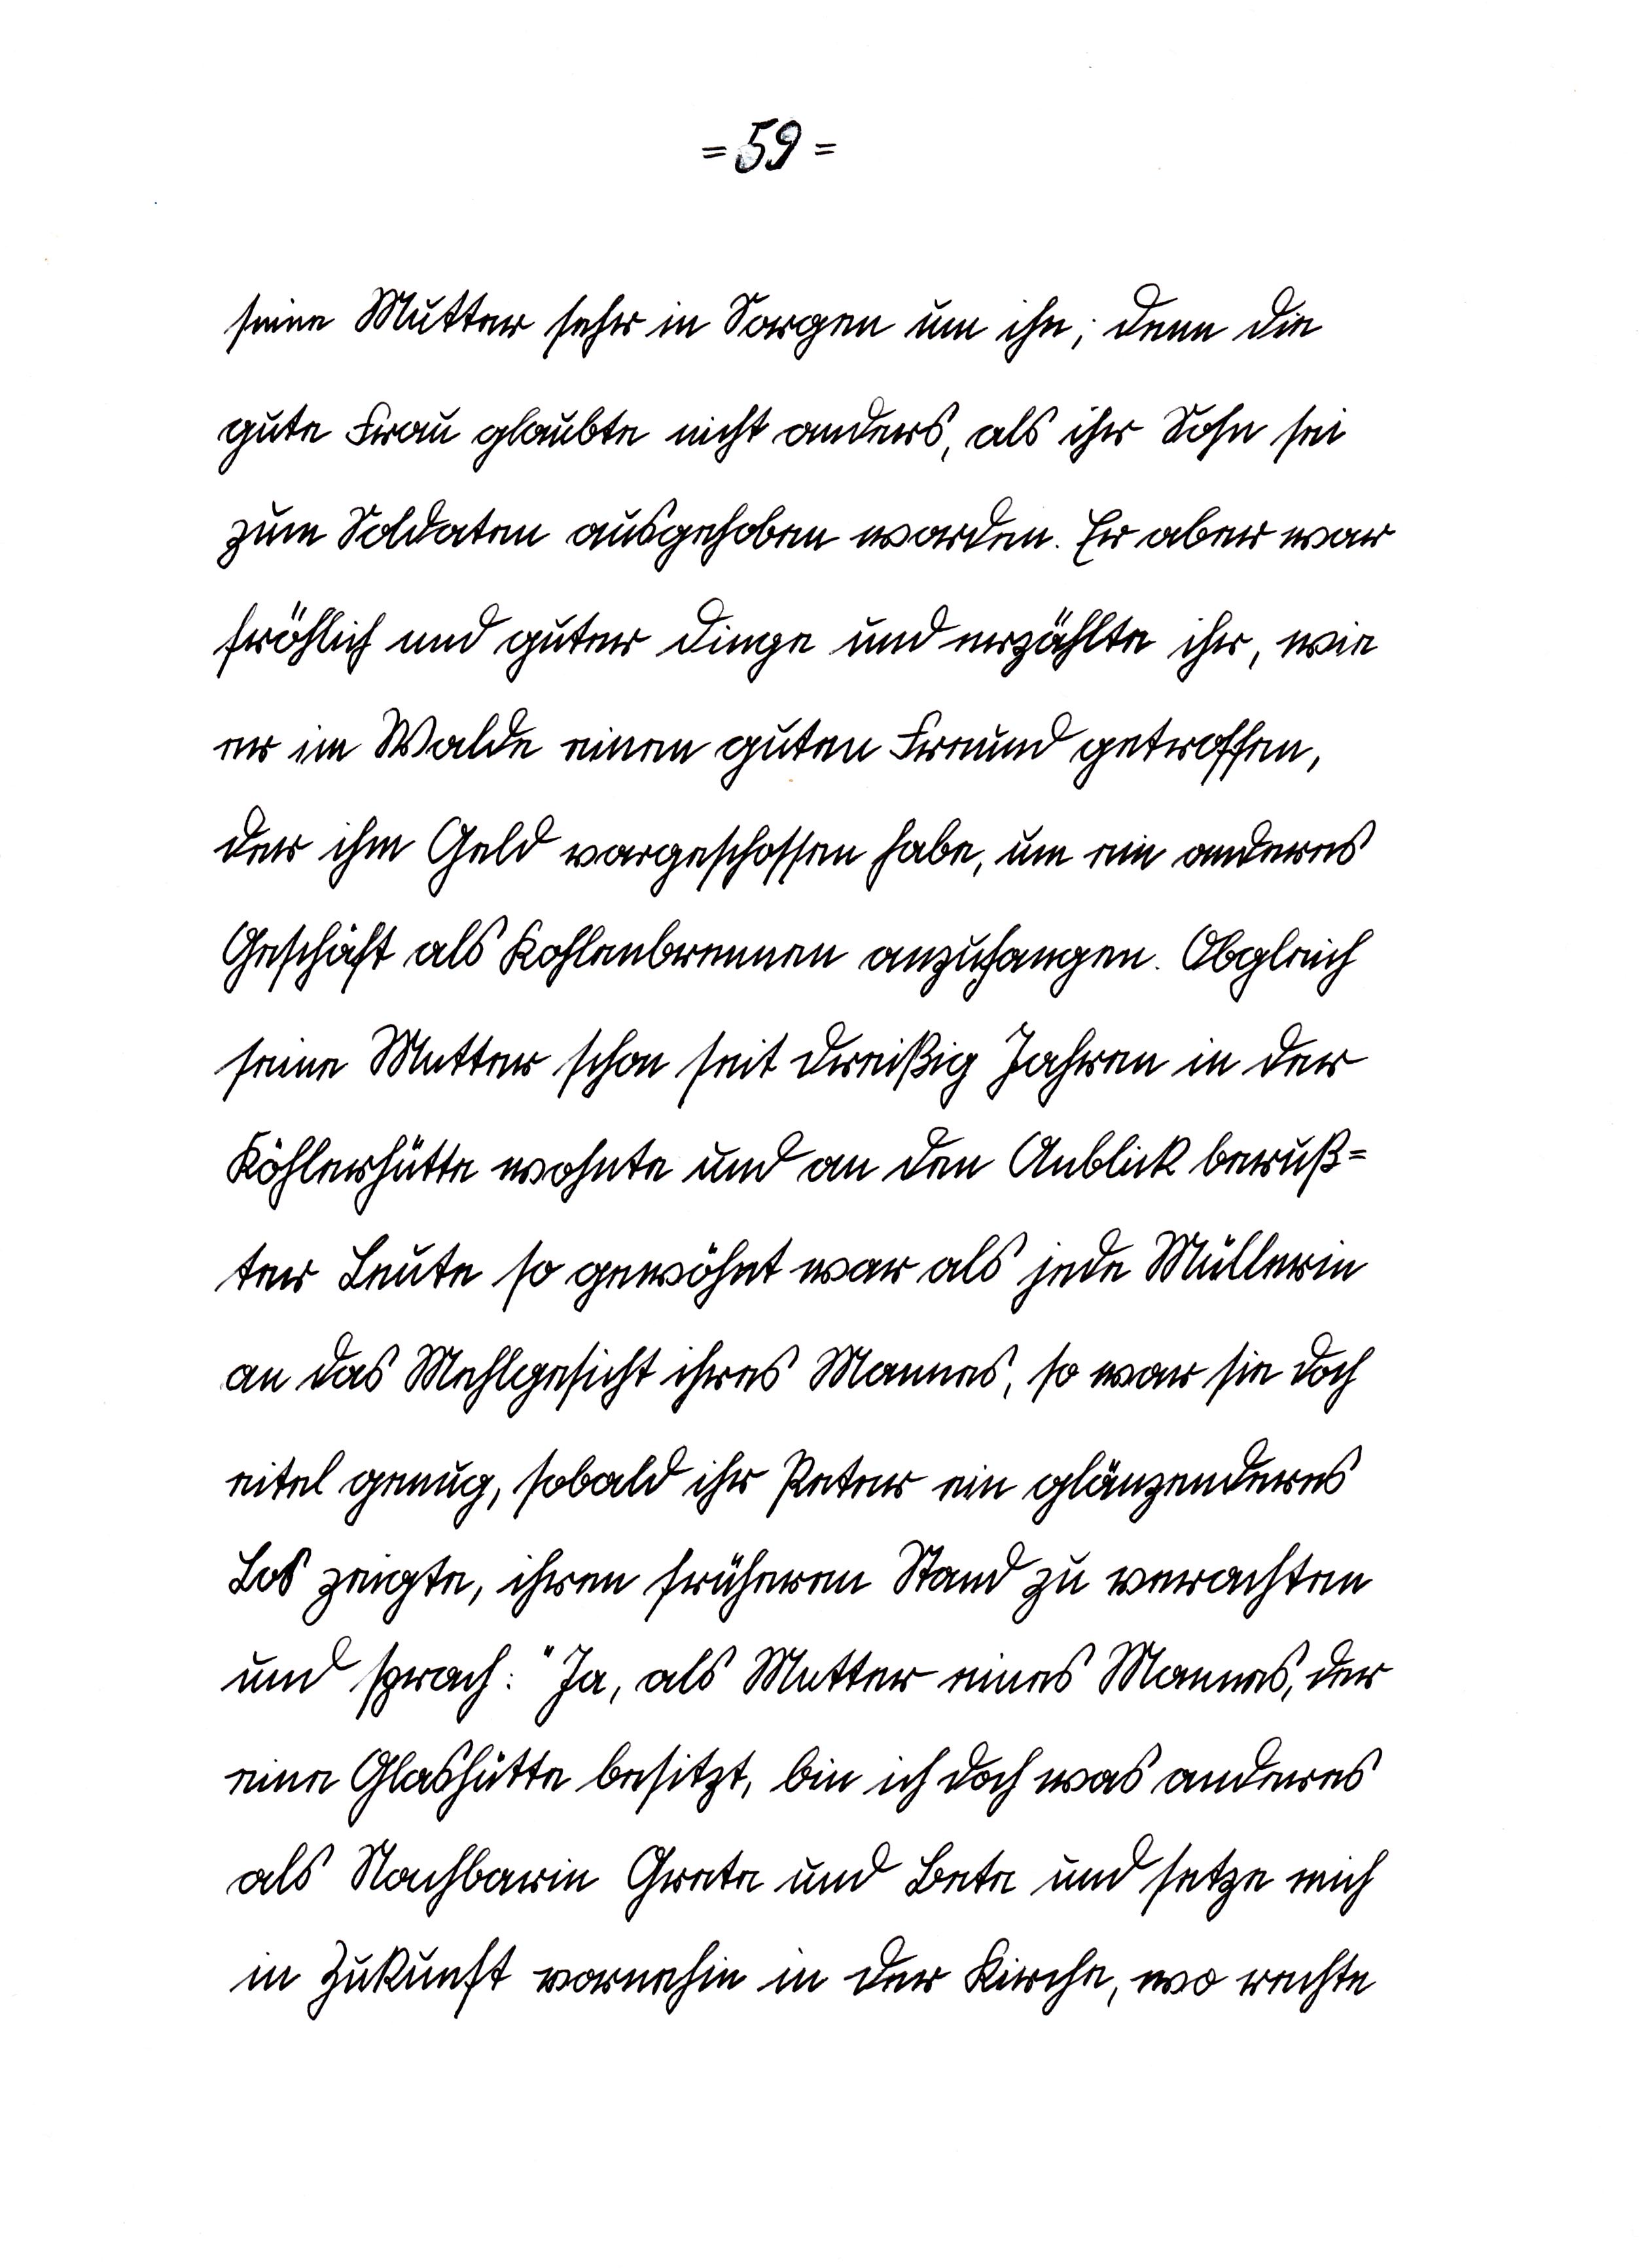 = 59 =
seine Mutter sehr in Sorgen um ihn; denn die
gute Frau glaubte nicht anders, als ihr Sohn sei
zum Soldaten ausgehoben worden. Er aber war
fröhlich und guter Dinge und erzählte ihr, wie
er im Walde einen guten Freund getroffen,
der ihm Geld vorgeschossen habe, um ein anderes
Geschäft als Kohlenbrennen anzufangen. Obgleich
seine Mutter schon seit dreißig Jahren in der
Köhlerhütte wohnte und an den Anblick beruß=
ter Leute so gewöhnt war als jede Müllerin
an das Mehlgesicht ihres Mannes, so war sie doch
eitel genug, sobald ihr Peter ein glänzenderes
Los zeigte, ihren früheren Stand zu verachten
und sprach: "Ja, als Mutter eines Mannes, der
eine Glashütte besitzt, bin ich doch was anderes
als Nachbarin Grete und Bete und setze mich
in Zukunft vornehin in der Kirche, wo rechte